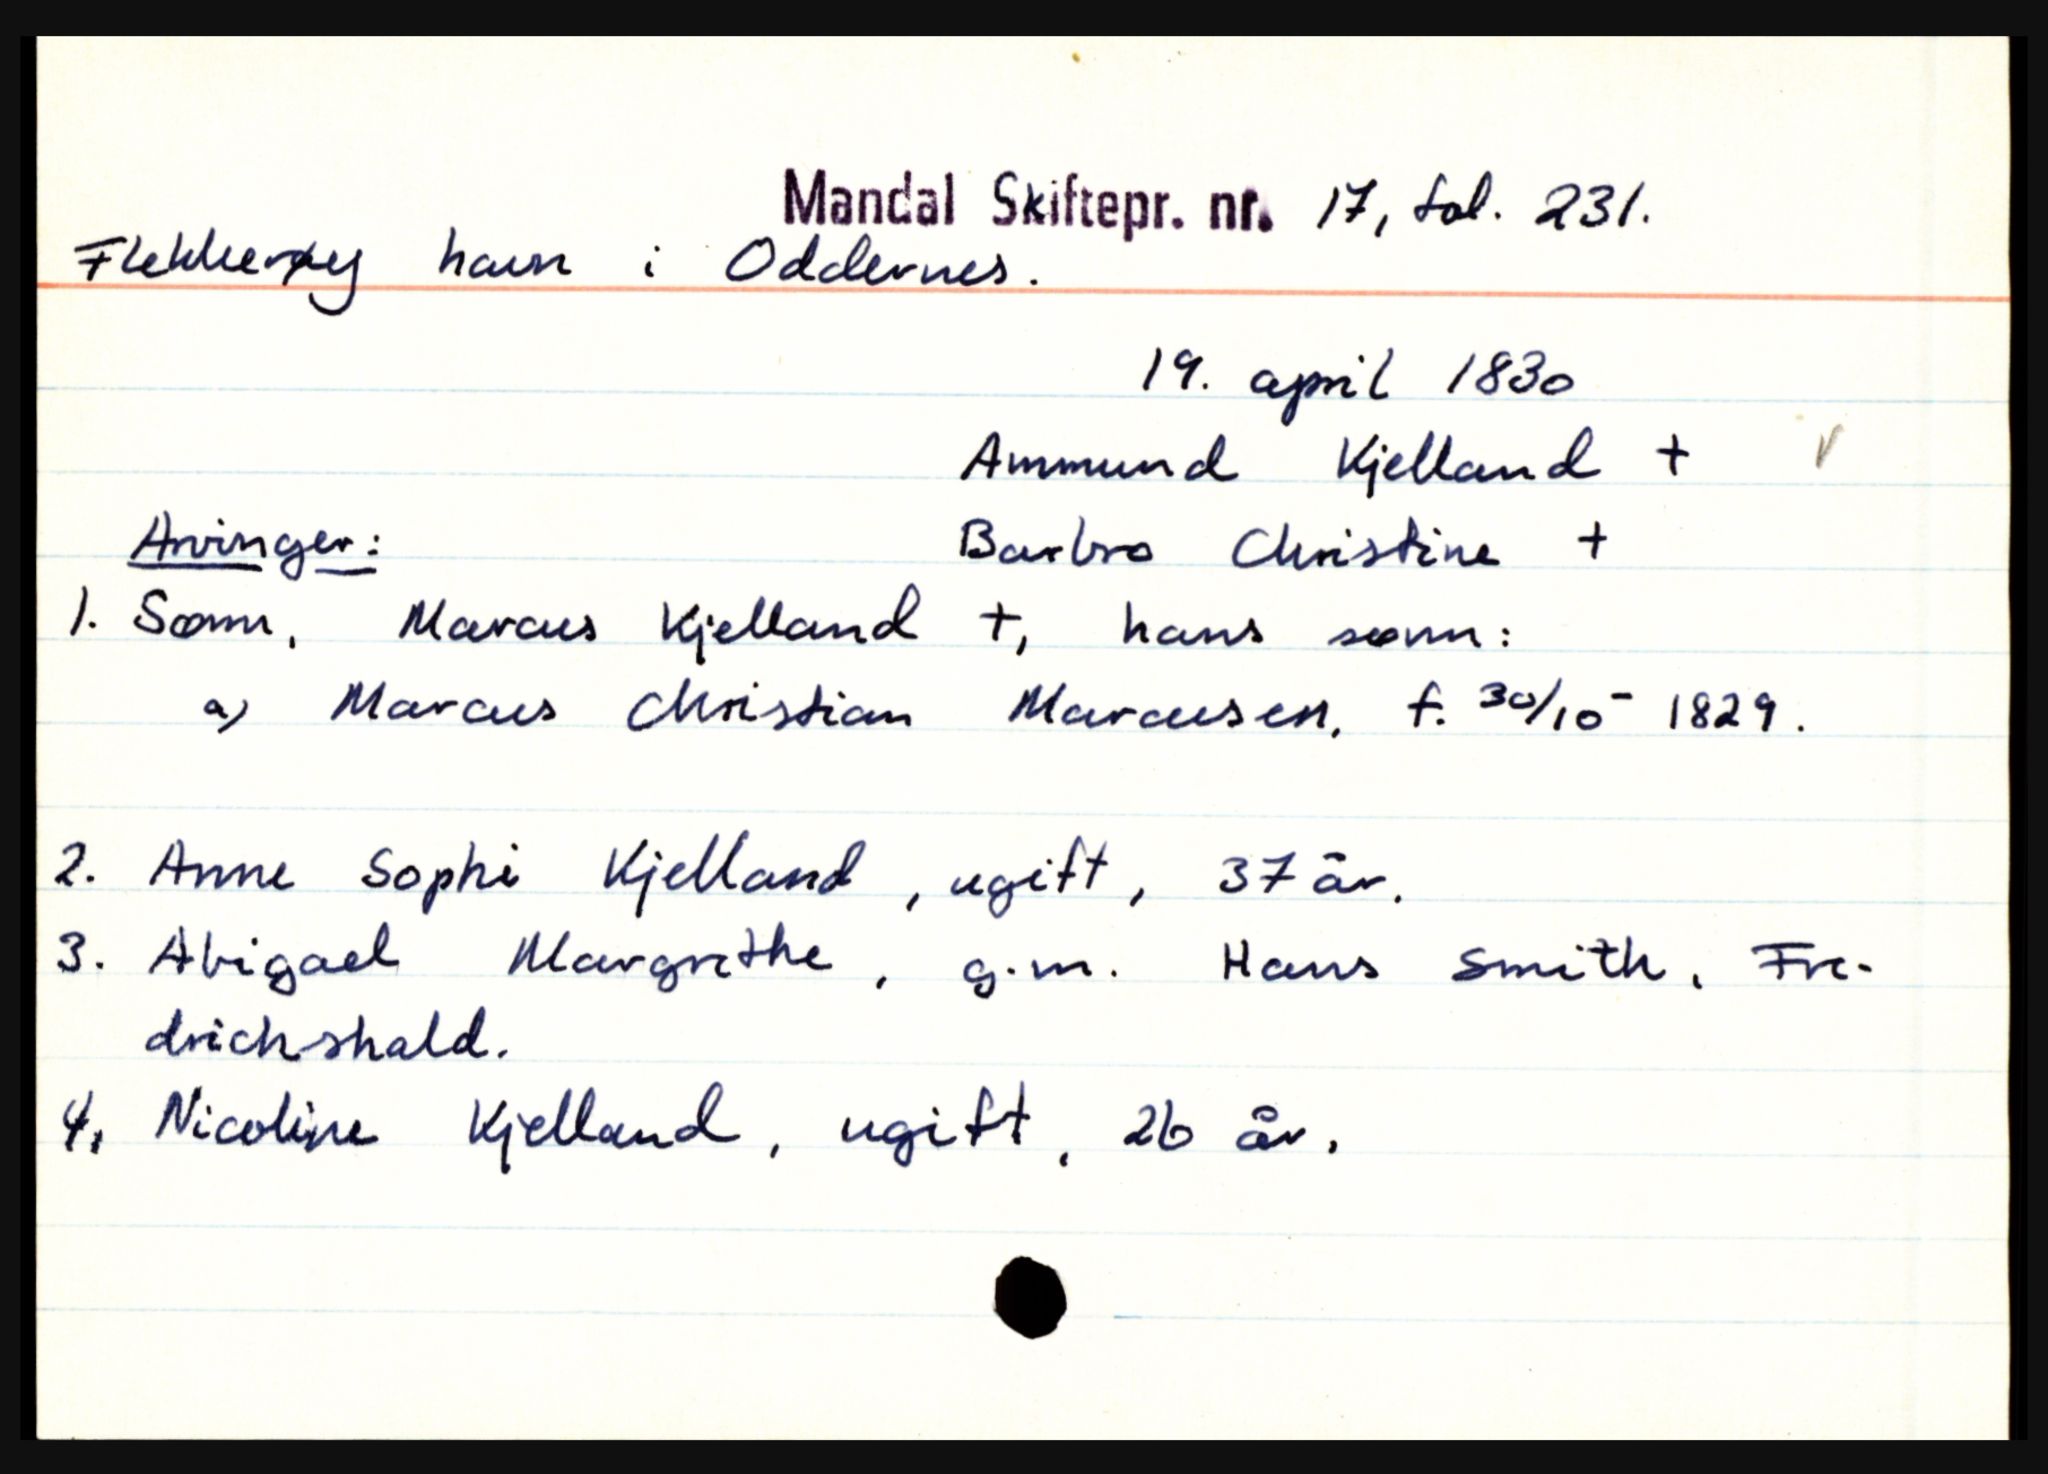 Mandal Skiftepr. nr. 17, fol. 231.
Flekkerøy havn i Oddernes.
19. april 1830
Ammund Kjelland +
Arvinger: Barbro Christine +
1. Sønn, Marcus Kjelland +, hans sønn:
a) Marcus Christian Marcusen, f. 30/10 - 1829.
2. Anne Sophi Kjelland, ugift, 37 år.
3. Abigael Margrethe, g.m. Hans Smith, Fre-
drichshald.
4. Nicoline Kjelland, ugift, 26 år.